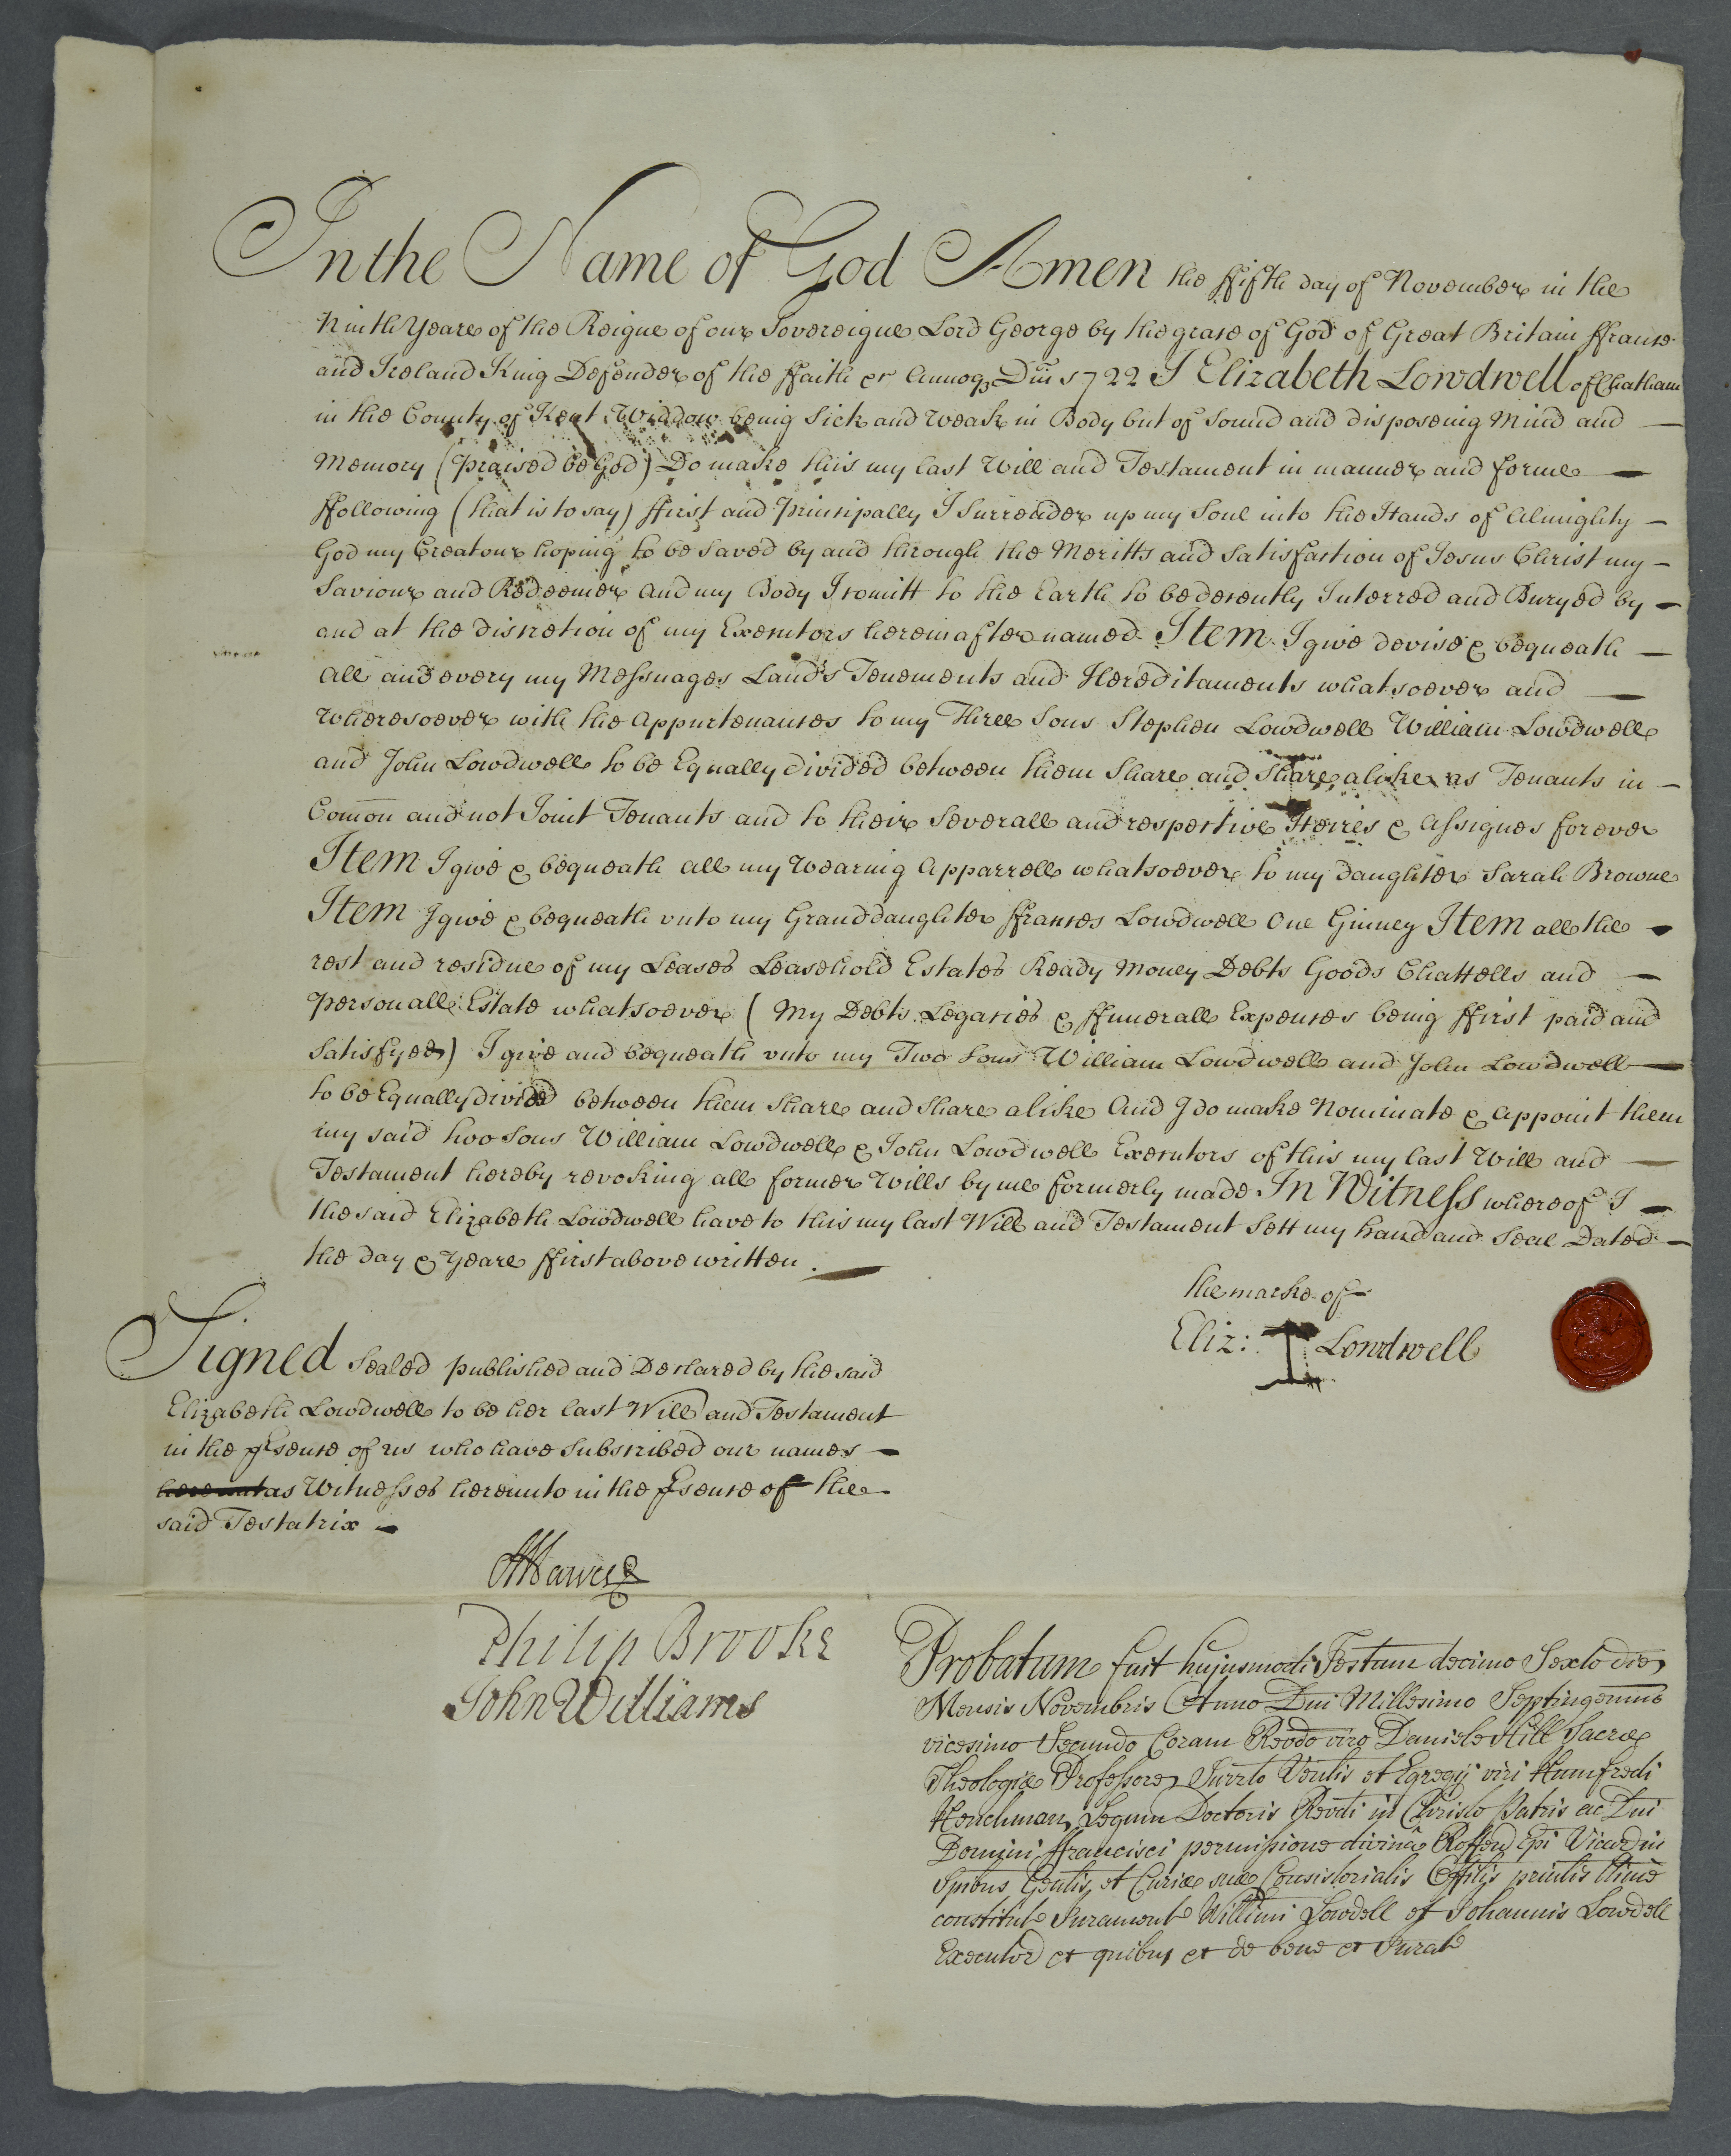 In the Name of God Amen the ffifth day of November in the
Ninth Yeare of the Reigne of our Sovereigne Lord George by the grace of God of Great Britain ffrance
and Ireland King Defender of the ffaith &c Annoq Dni 1722 I Elizabeth Lowdwell of Chatham
in the County of Kent Widdow being Sick and Weak in Body but of Sound and disposeing Mind and
Memory (praised be God) Do make this my last Will and Testament in manner and forme
ffollowing (that is to say) ffirst and Principally I Surrender up my Soul into the Hands of Almighty
God my Creatour hoping to be Saved by and through the Meritts and Satisfaction of Jesus Christ my
Saviour and Redeemer and my Body I comitt to the Earth to be decently Interred and Buryed by
and at the discretion of my Executors hereinafter named Item I give devise & bequeath
all and every my Messuages Lands Tenements and Hereditaments whatsoever and
wheresoever with the Appurtenances to my Three Sons Stephen Lowdwell William Lowdwell
and John Lowdwell to be Equally divided between them Share and Share alike as Tenants in
Comon and not Joint Tenants and to their Severall and respective Heires & Assignes forever
Item I give & bequeath all my Wearing Apparrell whatsoever to my daughter Sarah Browne
Item I give & bequeath vnto my Granddaughter ffrances Lowdwell One Ginney Item all the
rest and residue of my Leases Leasehold Estates Ready Money Debts Goods Chattells and
Personall Estate whatsoever (My Debts Legacies & ffunerall Expences being ffirst paid and
Satisfyed) I give and bequeath vnto my Two Sons William Lowdwell and John Lowdwell
to be Equally divided between them Share and Share alike And I do make Nominate & Appoint them
my said two Sons William Lowdwell & John Lowdwell Executors of this my last Will and
Testament hereby revoking all former Wills by me formerly made In Witness whereof I
the said Elizabeth Lowdwell have to this my last Will and Testament Sett my hand and Seal Dated
the day & Yeare ffirst above written.
the marke of
Eliz: Lowdwell
Signed Sealed published and Declared by the said
Elizabeth Lowdwell to be her last Will and Testament
in the prsence of us who have Subscribed our names
as Witnesses hereunto in the psence of the
said Testatrix
Philip Brooke
John Williams
Probatum fuit hujusmodi Testum decimo Sexto die
Mensis Novembris Anno Dni Millesimo Septingenmo
vicesimo Secundo Coram Revdo viro Daniele Hill Sacræ
Theologiæ Professore Surrto Venlis et Egregij viri Humfredi
Henchman Legum Doctoris Revdi in Christo Patris ac Dni
Domini ffrancisci permissione divinâ Roffen Epi Vicarij in
Spribus Genlis et Curiæ suæ Consistorialis Offilis prinlis ltime
constitut Jurament Willimi Lowdell et Johannis Lowdell
Executor et quibus et de bene et Jurat